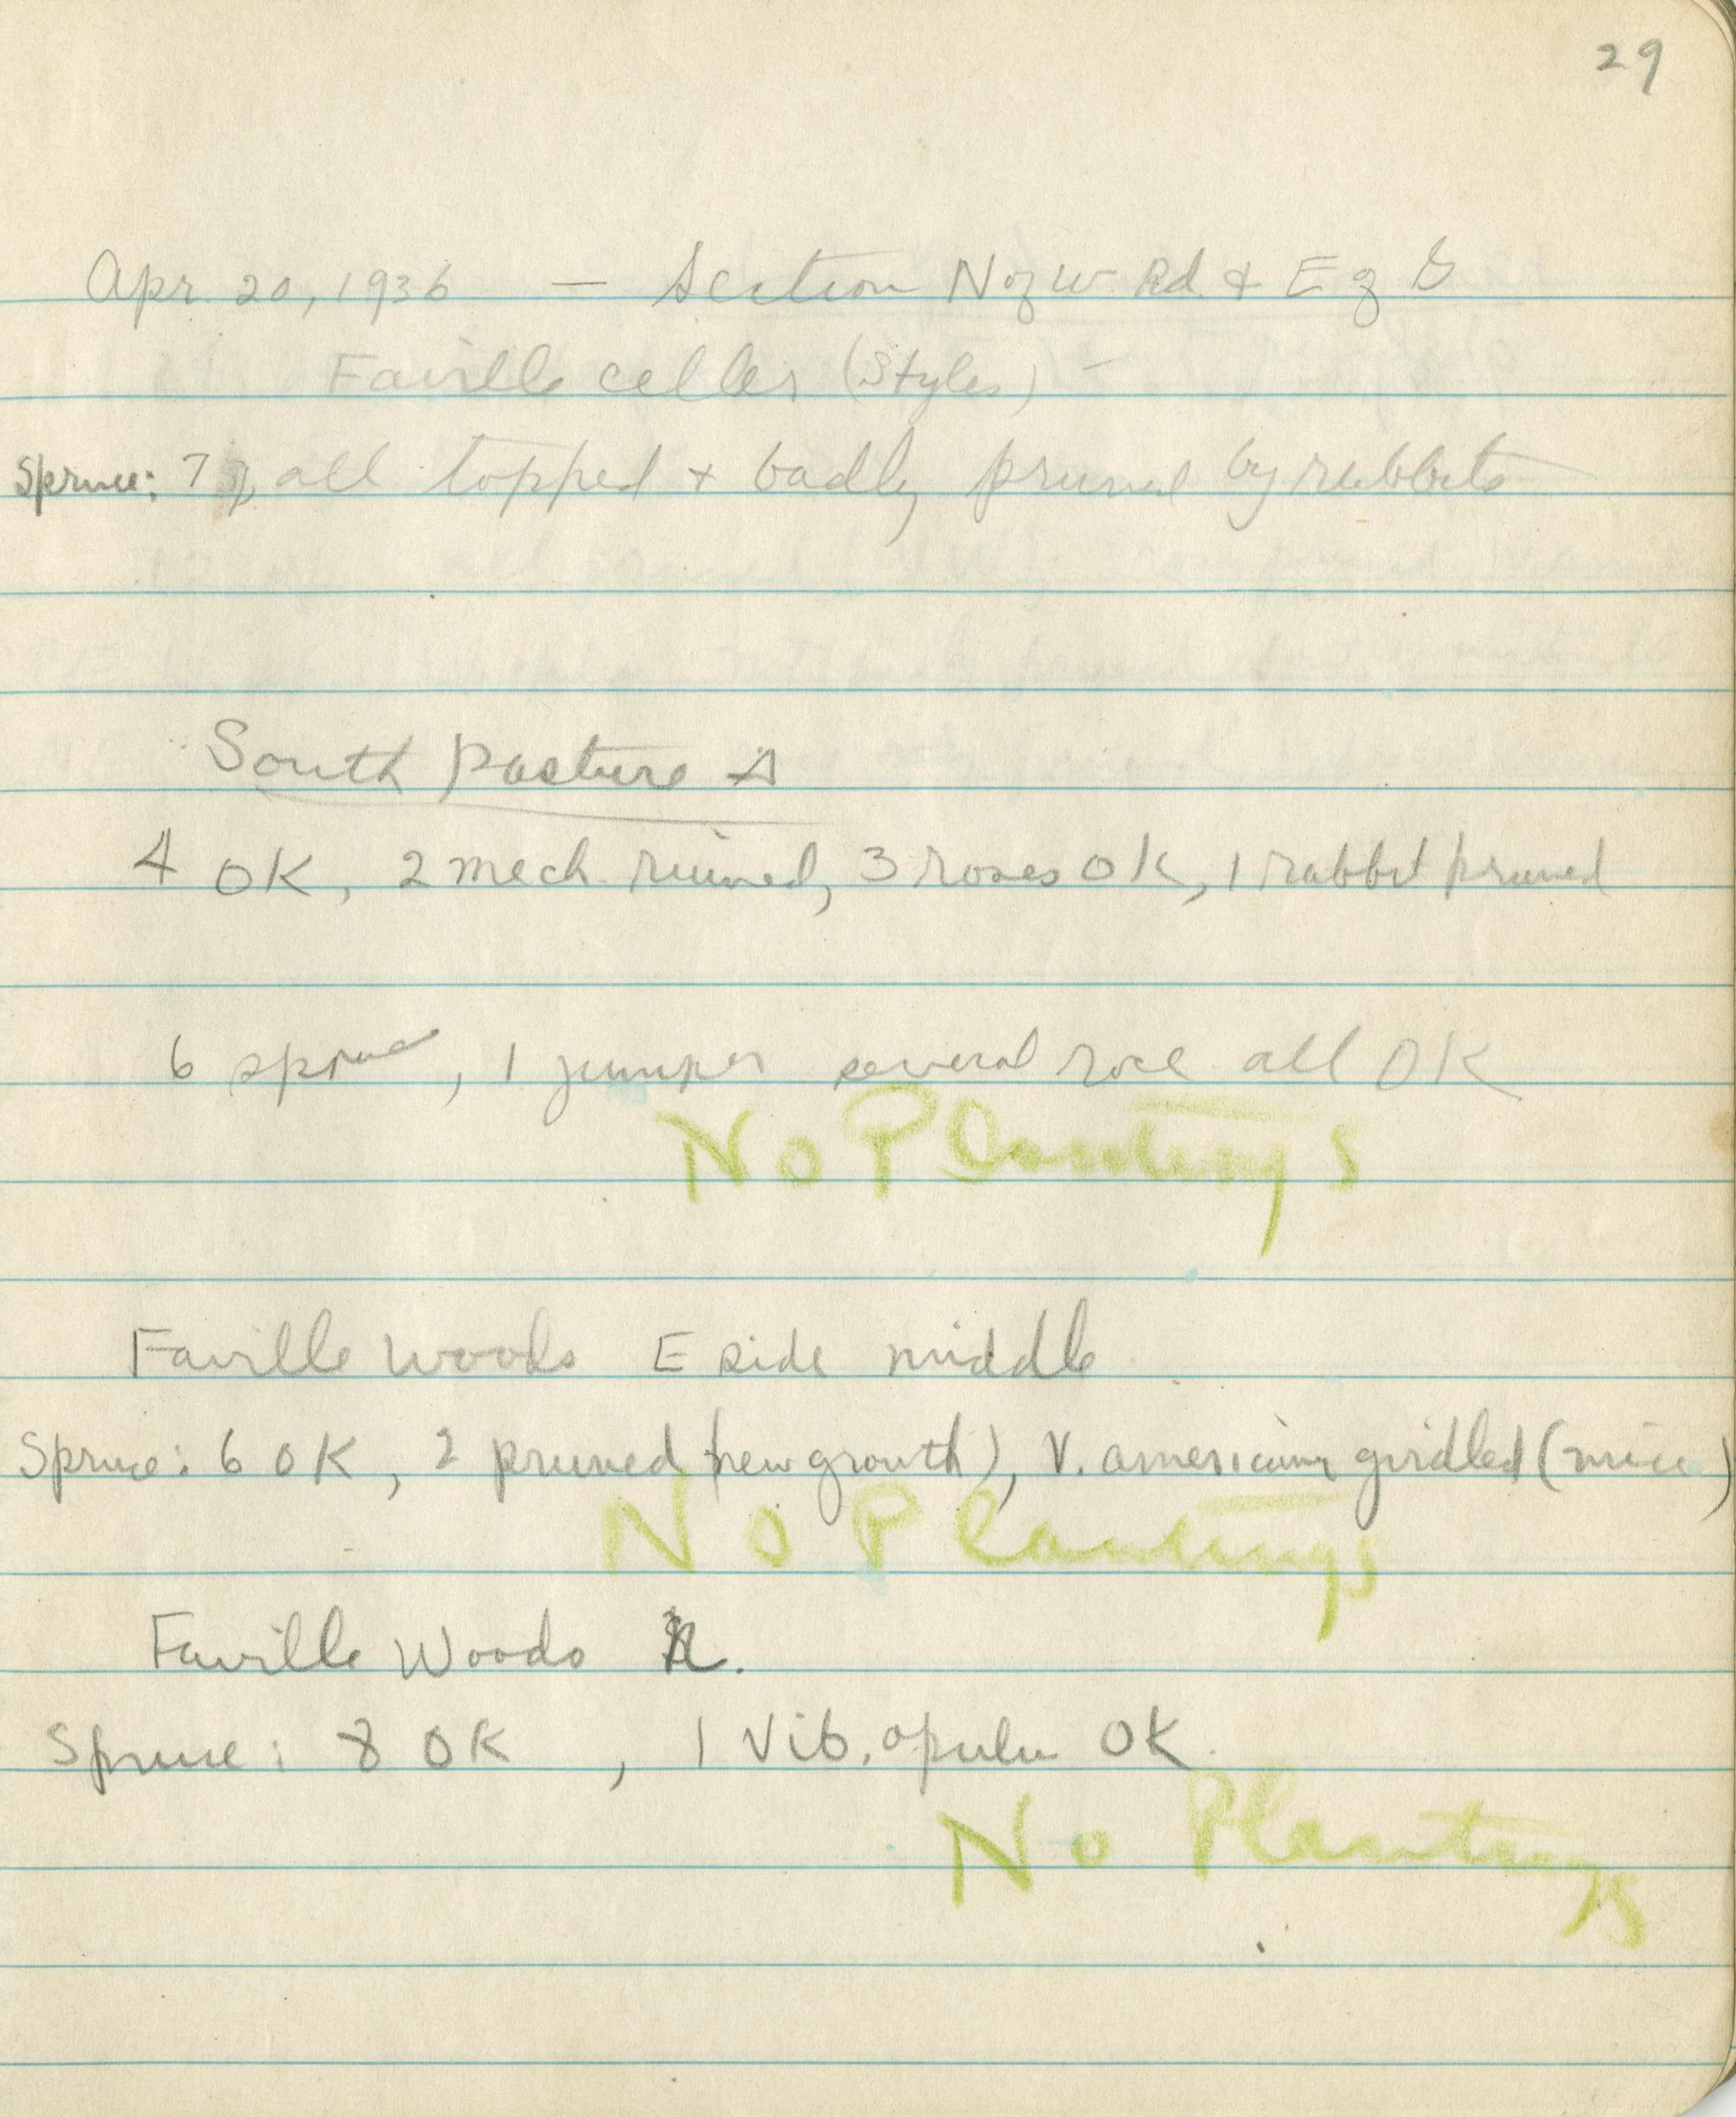 29
Apr. 20, 1936 — Section N of W. Rd. & E of G
Faville celler (Styles) -
Spruce: 7 all topped + badly pruned by rabbits
South pasture
4 OK, 2 mech. ruined, 3 roses OK, 1 rabbit pruned
6 spruce, 1 juniper several rose all OK
No Plantings
Faville Woods E side middle
Spruce: 6 OK, 2 pruned (new growth), V. americana girdled (mice)
No Plantings
Faville Woods
Spruce: 8 OK, 1 Vib. opulu OK.
No Plantings